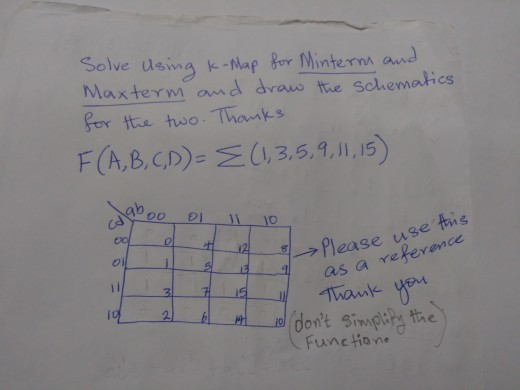 Solve Using K-Map for Minterm and
Maxterm and draw the schematics
for the two. Thanks
F(A,B,C,D) = Σ(1,3,5,9,11,15)
ab
cd 00 01 11 10
00 0 4 12 8
01 1 5 13 9
11 3 7 15 11
10 2 6 14 10
→ Please use this
as a reference
Thank you
(don't simplify the
Function.)